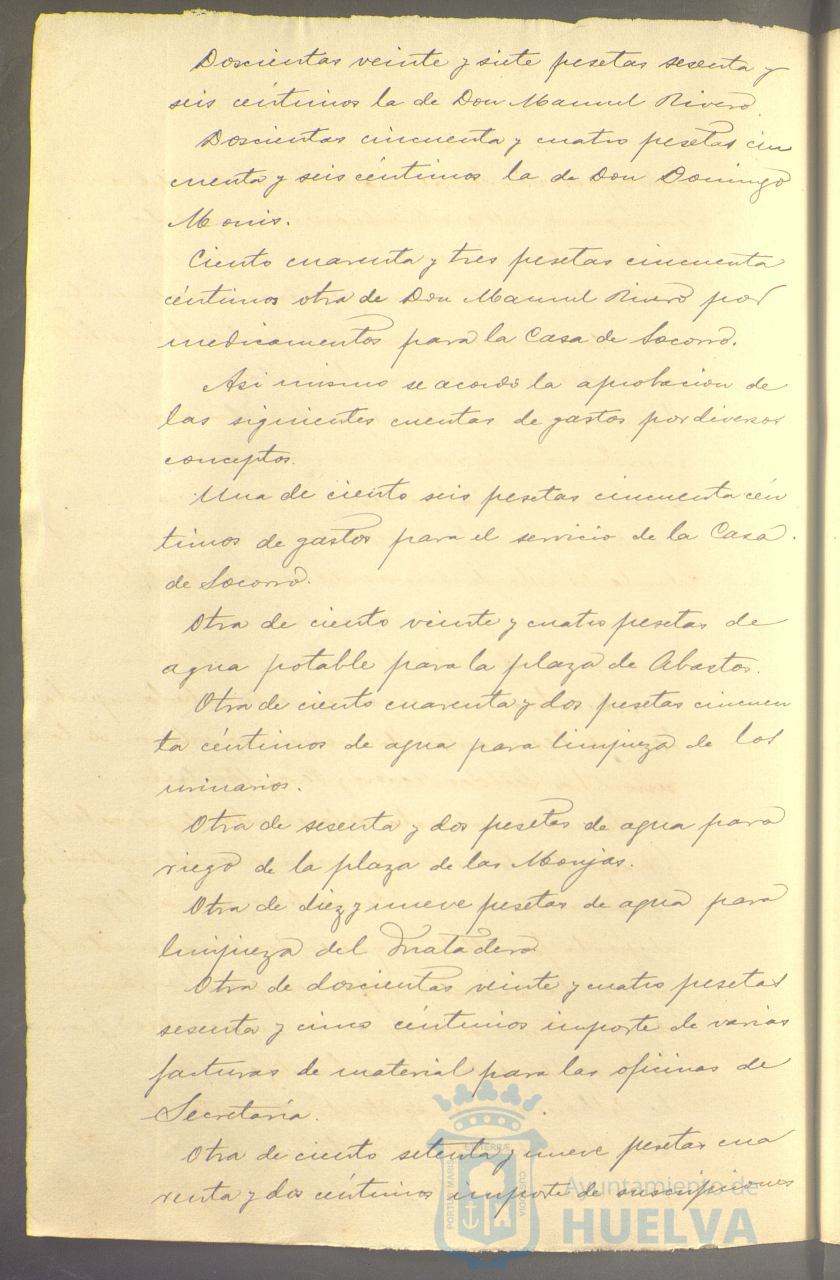 Doscientas veinte y siete pesetas sesenta y
seis céntimos la de Don Manuel Rivero.
Doscientas cincuenta y cuatro pesetas cin
cuenta y seis céntimos la de Don Domingo
Monis.
Ciento cuarenta y tres pesetas cincuenta
céntimos otra de Don Manuel Rivero por
medicamentos para la Casa de Socorro.
Asi mismo se acordó la aprobacion de
las siguientes cuentas de gastos por diversos
conceptos.
Una de ciento seis pesetas cincuenta cén
timos de gastos para el servicio de la Casa
de Socorro.
Otra de ciento veinte y cuatro pesetas de
agua potable para la plaza de Abastos.
Otra de ciento cuarenta y dos pesetas cincuen
ta céntimos de agua para limpieza de los
urinarios.
Otra de sesenta y dos pesetas de agua para
riego de la plaza de las Monjas.
Otra de diez y nueve pesetas de agua para
limpieza del Matadero
Otra de doscientas veinte y cuatro pesetas
sesenta y cinco céntimos importe de varias
facturas de material para las oficinas de
Secretaría.
Otra de ciento setenta y nueve pesetas cua
renta y dos céntimos importe de suscripciones
Ayuntamiento de
HUELVA
PORTUS MARIS
ET TERRÆ
CUSTODIA